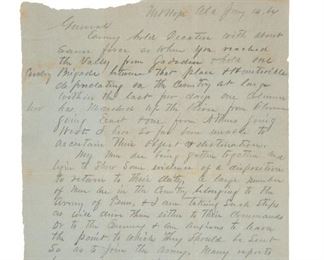 Mt Hope Ala Jany 14. 64
General
Enemy hold Decatur with about
same force as when you reached
the Valley from Gadsden & hold one
Cavalry Brigade between that place & Huntsville
depredating on the Country at large
Within the last few days one Column
has Marched up the River from
going East some from Athens going
West I have so far been unable to
ascertain their object & destination.
My Men are being gotten together and
begin to show some evidence of a disposition
to return to their duty, a large number
of Men are in the Country belonging to the
Army of Tenn, & I am taking such steps
as will drive them either to their Commands
or to the Enemy & am anxious to learn
the point to which they should be sent
so as to join the Army. Many reports